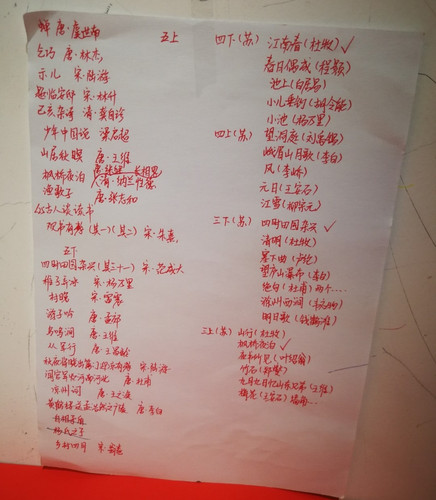 蝉 唐·虞世南
五上
乞巧 唐·林杰
示儿 宋·陆游
题临安邸 宋·林升
己亥杂诗 清·龚自珍
少年中国说 梁启超
山居秋暝 唐·王维
枫桥夜泊 唐·张继 长相思
清·纳兰性德
渔歌子 唐·张志和
古人谈读书
观书有感(其一)(其二) 宋·朱熹
五下
四时田园杂兴(其三十一) 宋·范成大
稚子弄冰 宋·杨万里
村晚 宋·雷震
游子吟 唐·孟郊
鸟鸣涧 唐·王维
从军行 唐·王昌龄
秋夜将晓出篱门迎凉有感 宋·陆游
闻官军收河南河北 唐·杜甫
凉州词 唐·王之涣
黄鹤楼送孟浩然之广陵 唐·李白
自相矛盾
杨氏之子
乡村四月 宋·翁卷
四下(苏) 江南春(杜牧)✓
春日偶成(程颢)
池上(白居易)
小儿垂钓(胡令能)
小池(杨万里)
四上(苏) 望洞庭(刘禹锡)
峨眉山月歌(李白)
风(李峤)
元日(王安石)
江雪(柳宗元)
三下(苏) 四时田园杂兴✓
清明(杜牧)
塞下曲(卢纶)
望庐山瀑布(李白)
绝句(杜甫)两个...
滁州西涧(韦应物)
明日歌(钱鹤滩)
三上(苏) 山行(杜牧)
枫桥夜泊✓
夜书所见(叶绍翁)
竹石(郑燮)
九月九日忆山东兄弟(王维)
梅花(王安石)墙角...